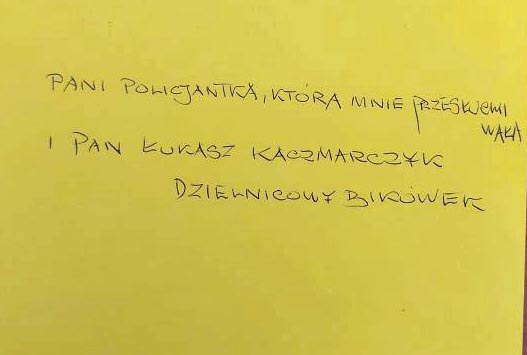 PANI POLICJANTKA, KTÓRA MNIE
WAŁA
I PAN ŁUKASZ KACZMARCZYK
DZIELNICOWY BIKÓWEK